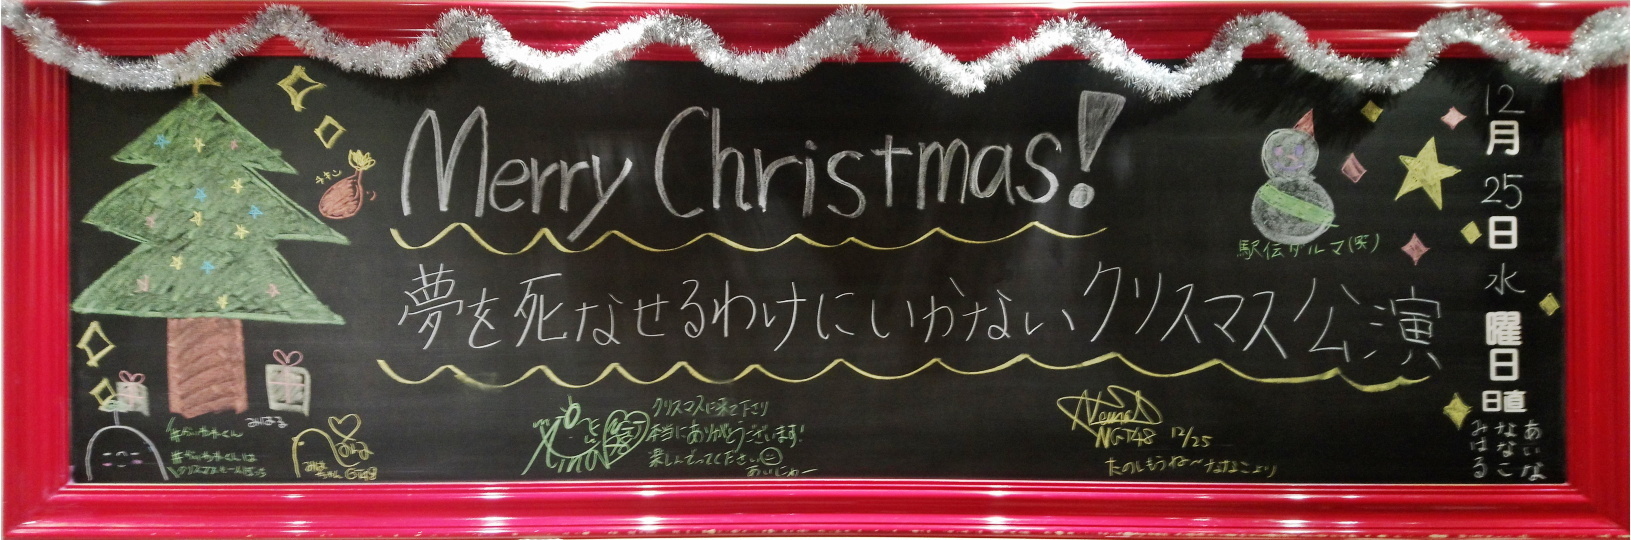 Merry Christmas!
夢を死なせるわけにいかないクリスマス公演
チキン
駅伝ダルマ(男)
12
月
25
日
水
曜
日
日直
あいな
ななこ
みはる
みはる
クリスマスに来て下さり
本当にありがとうございます!
楽しんでってください
あいにゃー
NGT48 12/25
たのしもうね〜ななこより